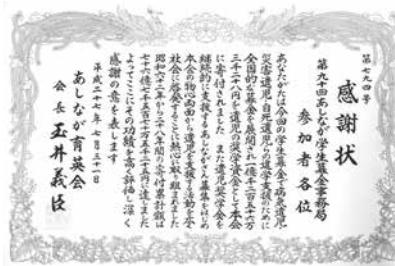 第七九四号
感謝状
第九十回あしなが学生募金事務局
参加者各位
あなたがたは今回の学生募金で病気遺児
災害遺児自死遺児らの進学支援のために
全国的な募金を展開され一億千二百五十六万
三千二十八円を遺児の奨学資金として本会
に寄付されました また遺児奨学金を
継続的に支援するあしながさん募集をはじめ
本会の物心両面から遺児を支援する活動を広く
社会に啓発することに熱心に取り組まれました
昭和六十二年から二十八年間の寄付累計額は
七十六億七千五百七十四万五千二百五円に達しました
よってここにその功績を高く評価し深く
感謝の意を表します
平成二十七年七月三十一日
あしなが育英会
会長 玉井義臣